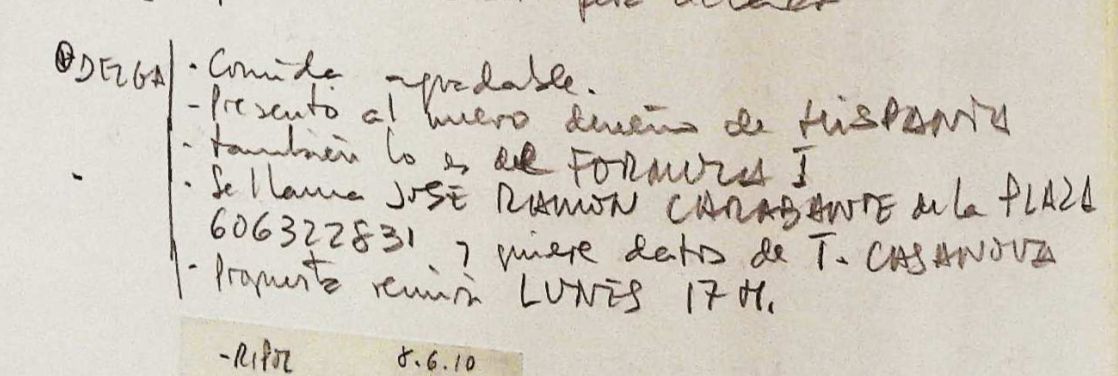 para
DEZGA
· Comida agradable.
- Presento al nuevo dueño de HISPANIA
· también lo es del FORMULA I
· Se llama JOSE RAMON CARABANTE de la PLAZA
606322831 y quiere datos de T. CASANOVA
· Propuesta reunión LUNES 17 H.
- RIPOL 8.6.10